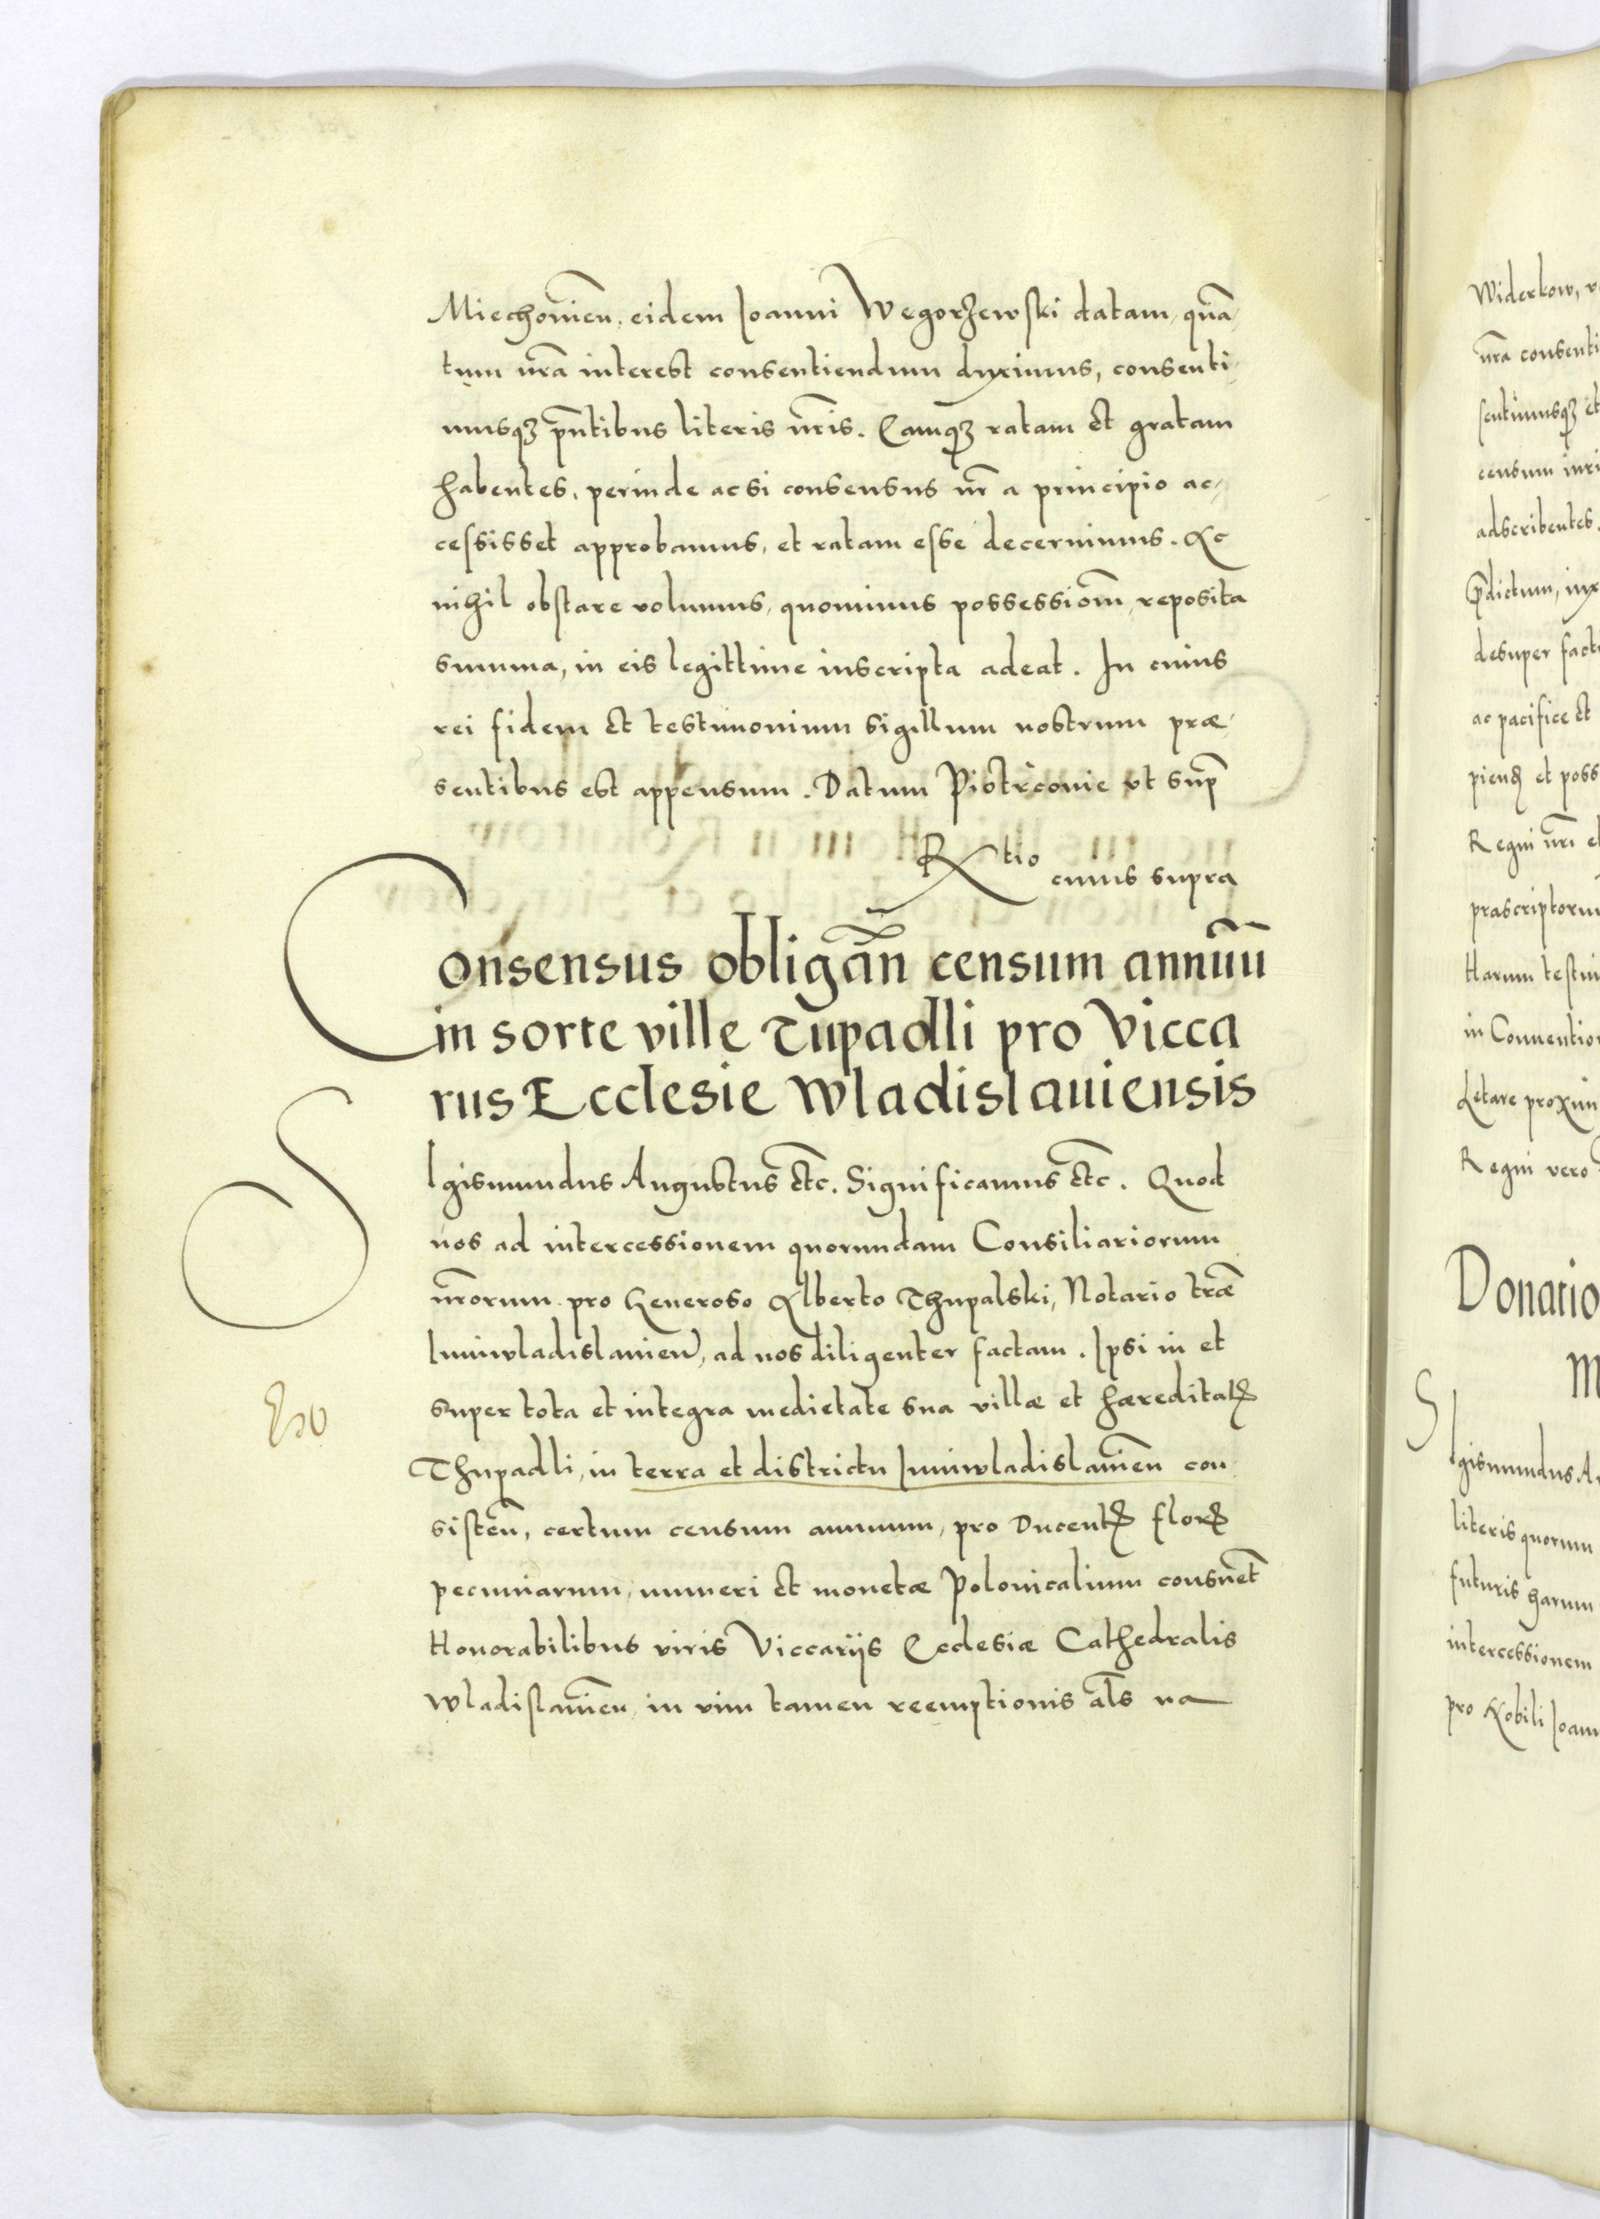 Miechouien̄, eidem Ioanni Wegorzewski datam, quā
tum nr̄a interest consentiendum duximus, consenti
musq3 pn̄tibus literis nr̄is. Eamq3 ratam et gratam
habentes, perinde acsi consensus nr̄ a principio ac-
cessisset approbamus, et ratam esse decernimus. Ac
nihil obstare volumus, quominus possessiōm, reposita
summa, in eis legittime inscripta adeat. In cuius
rei fidem et testimonium sigillum nostrum præ-
sentibus est appensum. Datum Piotrcouie vt sup̄
Rtio
cuius supra
Consensus obligān censum annuū
in sorte ville Tupadli pro Vicca
rijs Ecclesie Wladislauiensis
SIgismundus Augustus etc̄. Significamus etc̄. Quod
nos ad intercessionem quorundam Consiliariorum
nr̄orum pro Generoso Alberto Thupalski, Notario tr̄æ
Iuniwladislauien̄, ad nos diligenter factam. Ipsi in et
super tota et integra medietate sua villæ et hæreditatꝭ
Thupadli, in terra et districtu Iuniwladislauien̄ con
sisten̄, certum censum annuum, pro Ducentꝭ florꝭ
pecuniarum, numeri et monetæ Polonicalium consuet̄
Honorabilibus viris Viccarijs Ecclesiæ Cathedralis
Wladislauien̄ in vim tamen reemptionis al̄s na
Widerkow,
nr̄a consenti
sentimusq3 et
censum
adscribentes.
p̄dictum, iux
desuper fact
ac pacifice et
piendꝭ et poss
Regni nr̄i et
præscriptorum
Harum testim
in Conuention
Lętare proxim
Regni vero
Donatio
M
SIgismundus Au
literis quorum
futuris harum
intercessionem
pro Nobili Ioan